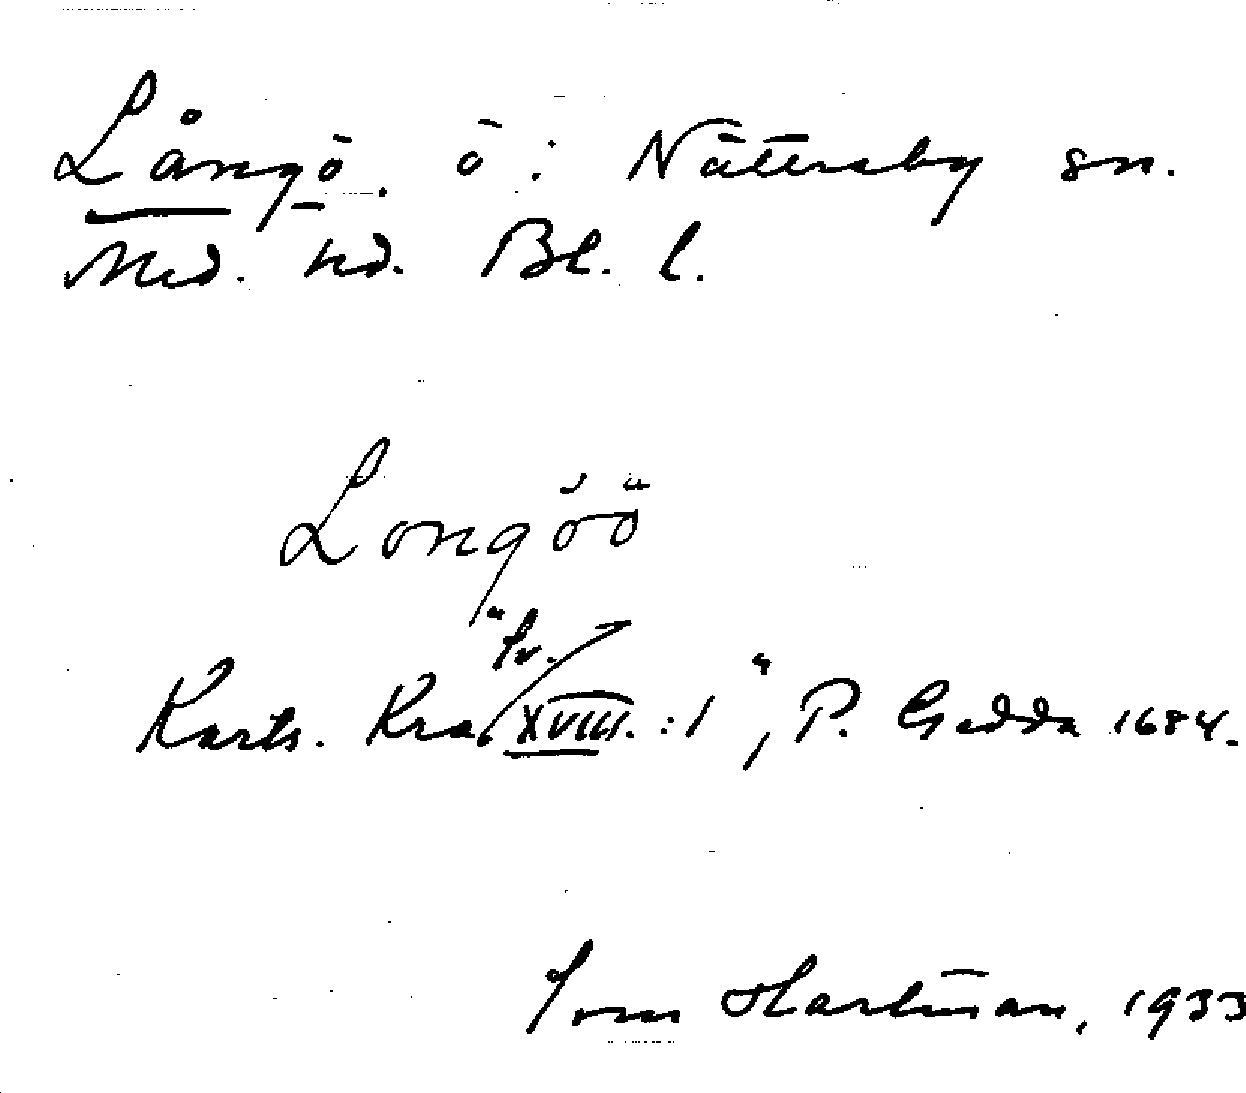 Långö. ö: Nättraby sn.
Med. hd. Bl. l.
Longöö
"Sv.
Karts. Kra XVIII. : 1", P. Gedda 1684.
Tom Hartman, 1933